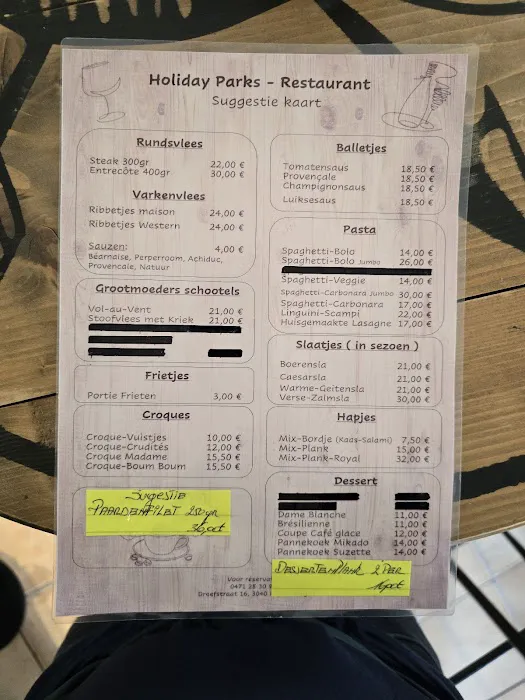 Holiday Parks - Restaurant
Suggestie kaart
Rundsvlees
Steak 300gr 22,00 €
Entrecôte 400gr 30,00 €
Varkenvlees
Ribbetjes maison 24,00 €
Ribbetjes Western 24,00 €
Sauzen: 4,00 €
Béarnaise, Perperroom, Achiduc,
Provencale, Natuur
Grootmoeders schootels
Vol-au-Vent 21,00 €
Stoofvlees met Kriek 21,00 €
Frietjes
Portie Frieten 3,00 €
Croques
Croque-Vuistjes 10,00 €
Croque-Crudités 12,00 €
Croque Madame 15,50 €
Croque-Boum Boum 15,50 €
Sugestie
PAARDENFILET 250gr
Balletjes
Tomatensaus 18,50 €
Provençale 18,50 €
Champignonsaus 18,50 €
Luiksesaus 18,50 €
Pasta
Spaghetti-Bolo 14,00 €
Spaghetti-Bolo Jumbo 26,00 €
Spaghetti-Veggie 14,00 €
Spaghetti-Carbonara Jumbo 30,00 €
Spaghetti-Carbonara 17,00 €
Linguini-Scampi 22,00 €
Huisgemaakte Lasagne 17,00 €
Slaatjes ( in sezoen )
Boerensla 21,00 €
Caesarsla 21,00 €
Warme-Geitensla 21,00 €
Verse-Zalmsla 30,00 €
Hapjes
Mix-Bordje (Kaas-Salami) 7,50 €
Mix-Plank 15,00 €
Mix-Plank-Royal 32,00 €
Dessert
Dame Blanche 11,00 €
Brésilienne 11,00 €
Coupe Café glace 12,00 €
Pannekoek Mikado 14,00 €
Pannekoek Suzette 14,00 €
2 PER
Voor réserva
Dreefstraat 16, 3040